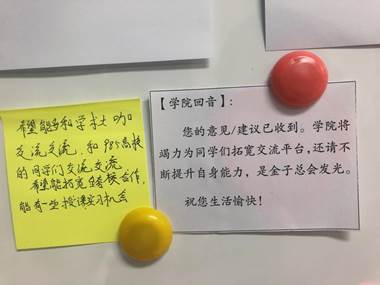 希望能够和学术大咖
交流交流，和985高校
的同学们交流交流
希望能拓宽
合作，
能有一些授课实习机会
【学院回音】：
您的意见/建议已收到。学院将
竭力为同学们拓宽交流平台，还请不
断提升自身能力，是金子总会发光。
祝您生活愉快！